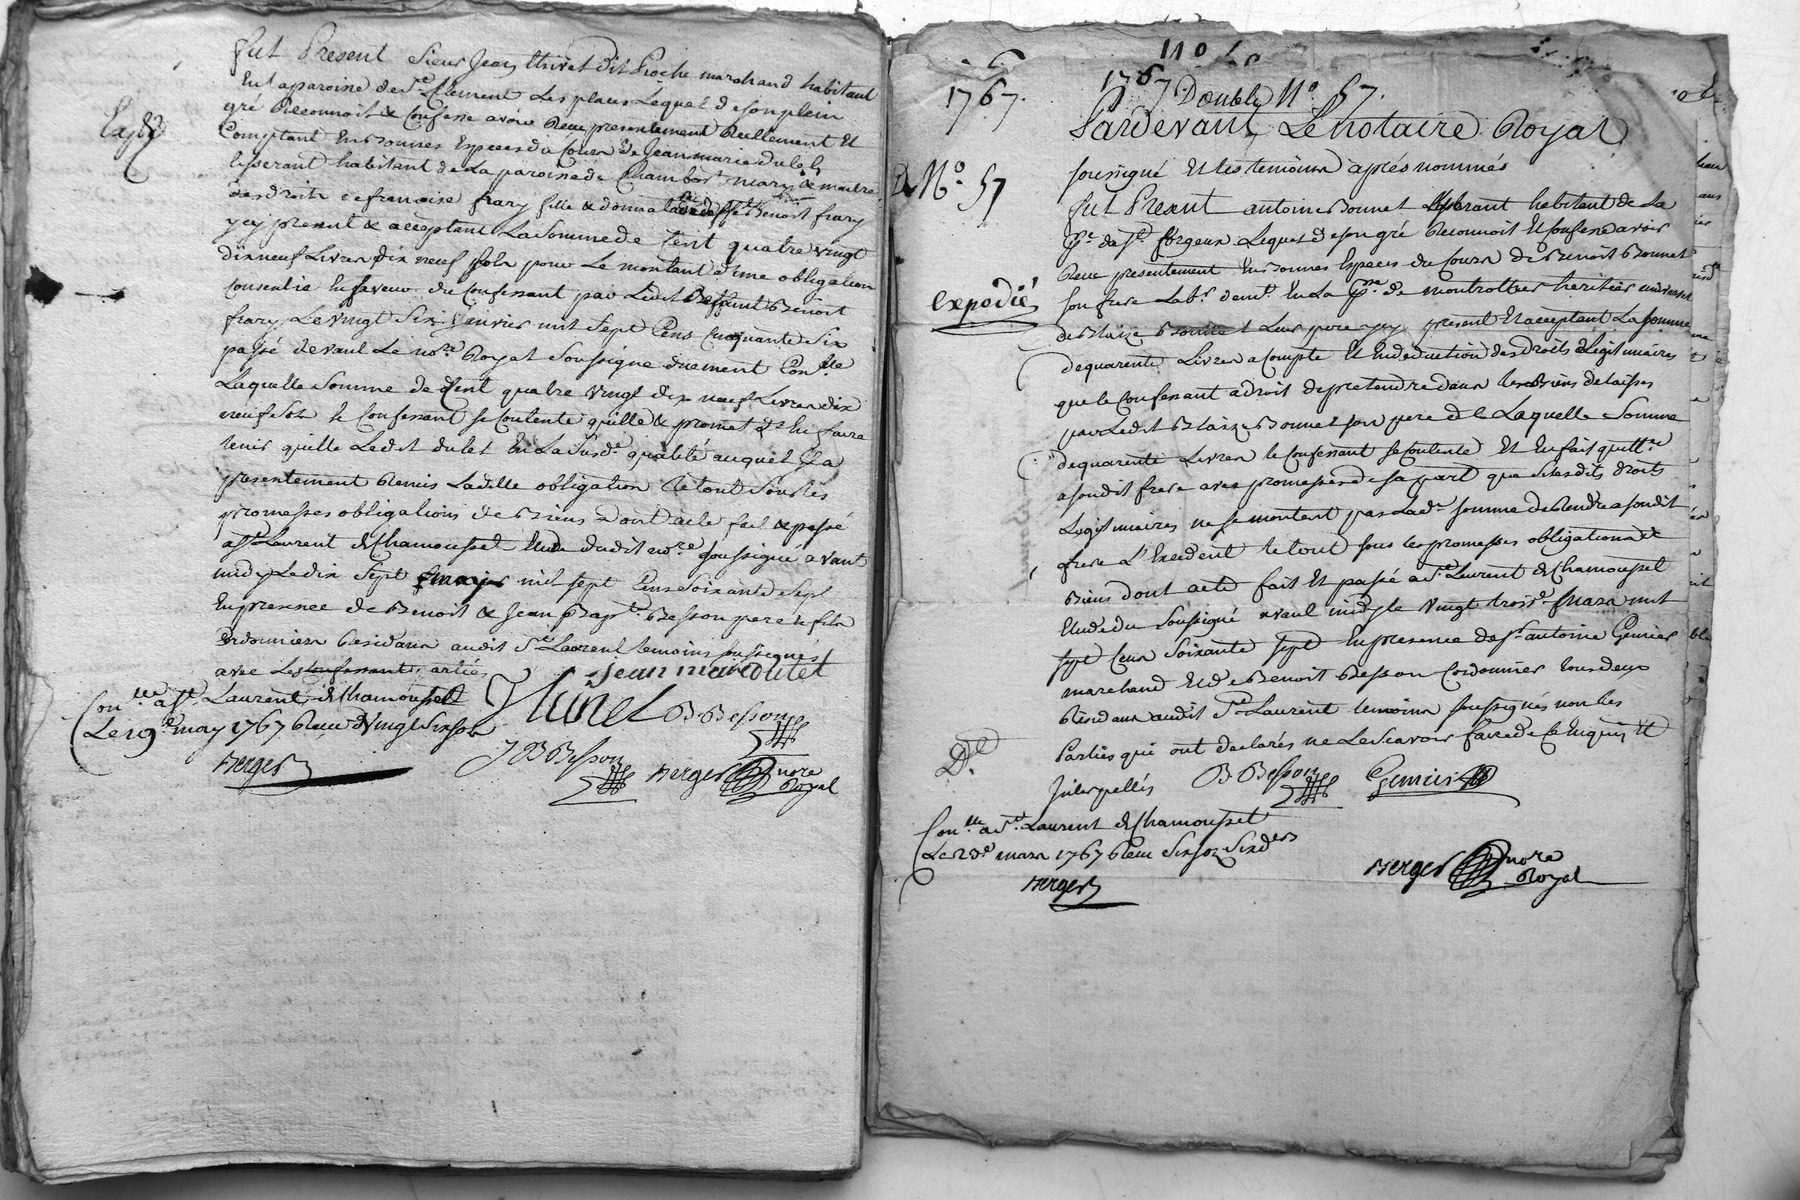 fut Present Sieur Jean thivet dit Pioche marchand habitant
En la paroisse de St Clement Les places Lequel de son plein
gré Reconnoit & Confesse avoir Reçu presentement Réellement Et
Comptant En bonnes Especes du Cours de Jean marie dulot
tisserant habitant de La paroisse de Chambost mary & maitre
des droits de francoise frary fille & donnataire de Benoit frary
y cy present & acceptant La Somme de Cent quatre vingt
dix neuf Livres dix neuf Sols pour Le montant d'une obligation
Consentie En faveur du Confessant par Ledit deffunt Benoit
frary Le vingt Six Janvier mil Sept Cens Cinquante Six
passé devant Le nore Royal Soussigné duement Conllée
Laquelle Somme de Cent quatre vingt dix neuf Livres dix
neuf Sols le Confessant Se Contente quitte & promet En faire
tenir quitte Ledit dulot En La Susde qualité auquel Il a
presentement Remis Ladite obligation Le tout Sous Les
promesses obligations de Biens Dont acte fait & passé
a St Laurent de Chamousset Etude dudit nore Soussigné avant
midy Le dix Sept may mil Sept Cens Soixante Sept
En presence de Benoit & Jean Bapte Besson pere & fils
Cordonniers Residans audit St Laurent temoins soussignés
avec Les parties
Jean marie dulot
Thivet B Besson
J B Besson Berger nore
Royal
Expdié
Conllé a St Laurent de Chamousset
Le 19e may 1767 Reçu vingt Six sols
Berger
110
1767. 1767. Double No 57.
Pardevant Le Notaire Royal
Soussigné Et les temoins après nommés
No 57
fut Present antoine Bonnet tisserant habitant de La
Psse de St forgeux Lequel de son gré Reconnoit Et Confesse avoir
Reçu presentement En bonnes Especes du Cours de Benoit Bonnet
expedié
son frere Labr demt En La Psse de montrottier heritier universel
de Blaize Bonnet Leur pere y cy present Et acceptant La somme
de quarente Livres a Compte Et En deduction des droits Legitimaires
que le Confessant a droit de pretendre dans Les Biens delaissés
par Ledit Blaize Bonnet son pere de Laquelle Somme
de quarente Livres le Confessant se Contente Et En fait quitte
a sondit frere avec promesses de sa part que si Lesdits droits
Legitimaires ne se montent pas Lade somme de Rendre a sondit
frere L'Exedent le tout sous les promesses obligations de
Biens dont acte fait Et passé a St Laurent de Chamousset
Etude du Soussigné avant midy le vingt trois mars mil
sept Cens Soixante Sept En presence de Sr antoine Genier
marchand Et de Benoit Besson Cordonnier tous deux
Residans audit St Laurent temoins soussignés non les
Parties qui ont declarés ne Le Scavoir faire de Ce Enquis Et
Interpellés B Besson Genier
Conllé a St Laurent de Chamousset
Le 23e mars 1767 Reçu Six sols Six ders
Berger
Berger nore
Royal